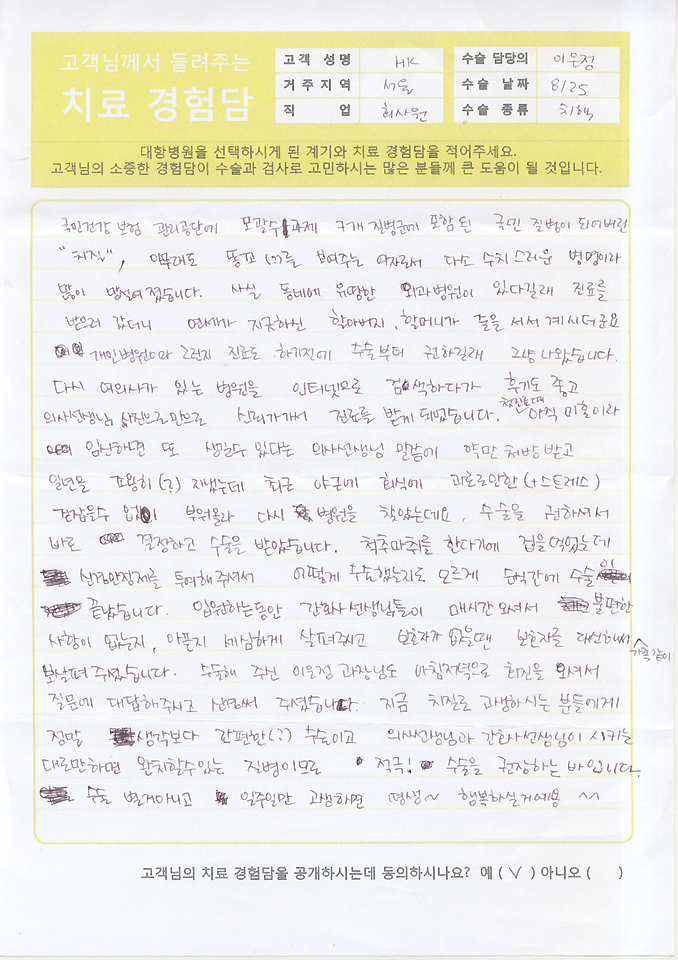 고객님께서 들려주는
치료 경험담
고객 성명 HK
거주지역 서울
직업 회사원
수술 담당의 이은정
수술 날짜 8/25
수술 종류 치핵
대항병원을 선택하시게 된 계기와 치료 경험담을 적어주세요.
고객님의 소중한 경험담이 수술과 검사로 고민하시는 많은 분들께 큰 도움이 될 것입니다.
국민건강 보험 관리공단에 포괄수과제 7개 질병군에 포함된 국민 질병이 되어버린
"치질", 아무래도 똥꼬(?)를 보여주는 여자로서 다소 수치스러운 병명이라
많이 망설여졌습니다. 사실 동네에 유명한 외과병원이 있다길래 진료를
받으러 갔더니 연세가 지긋하신 할아버지, 할머니가 줄을 서서 계시더군요
개인병원이라 그런지 진료도 하기전에 수술부터 권하길래 그냥 나왔습니다.
다시 여의사가 있는 병원을 인터넷으로 검색하다가 후기도 좋고
의사선생님 사진으로만으로 신뢰가가서 진료를 받게 되었습니다. 첫진료때 아직 미혼이라
임신하면 또 생길수 있다는 의사선생님 말씀에 약만 처방 받고
일년을 조용히(?) 지냈는데 최근 야근에 회식에 과로로인한 (+스트레스)
걷잡을수 없이 부워올라 다시 병원을 찾았는데요, 수술을 권하셔서
바로 결정하고 수술을 받았습니다. 척추마취를 한다기에 겁을먹었는데
신경안정제를 투여해 주셔서 어떻게 수술했는지도 모르게 순식간에 수술이
끝났습니다. 입원하는동안 간호사 선생님들이 매시간 오셔서 불편한
사항이 없는지, 아픈지 세심하게 살펴주고 보호자가 없을땐 보호자를 대신해서 가족같이
보살펴 주셨습니다. 수술해 주신 이은정 과장님도 아침저녁으로 회진을 오셔서
질문에 대답해주시고 신경써 주셨습니다. 지금 치질로 고생하시는 분들에게
정말 생각보다 간편한(?) 수술이고 의사선생님과 간호사선생님이 시키는
대로만하면 완치할수있는 질병이므로 적극! 수술을 권장하는 바입니다.
수술 별거아니고 일주일만 고생하면 평생~ 행복하실거예용 ^^
고객님의 치료 경험담을 공개하시는데 동의하시나요? 예 ( V ) 아니오 ( )